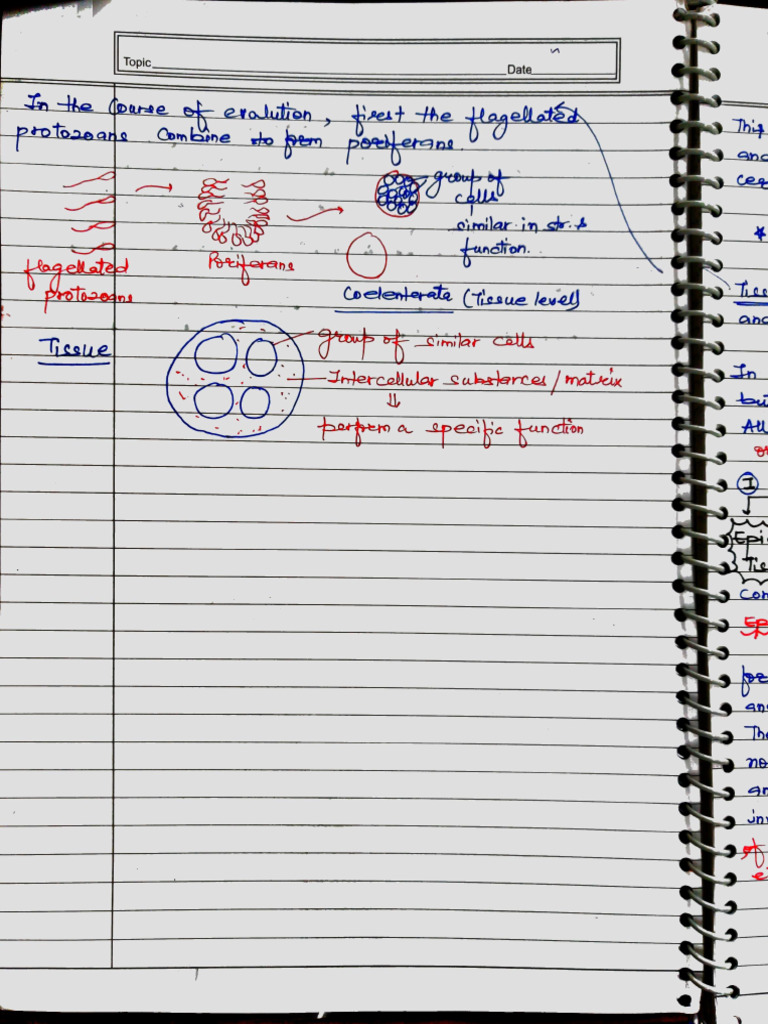 Topic Date
In the Course of evalution, first the flagellated
protozoans combine to form poriferans
group of
cells
similar in str. &
function.
flagellated
protozoans
Poriferans
Coelenterate (Tissue level)
Tissue
group of similar cells
Intercellular substances/matrix
⇓
perform a specific function
This
and
*
Tiss
and
In
but
All
I
Epi
Tis
con
Ep
for
and
The
no
an
inv
of